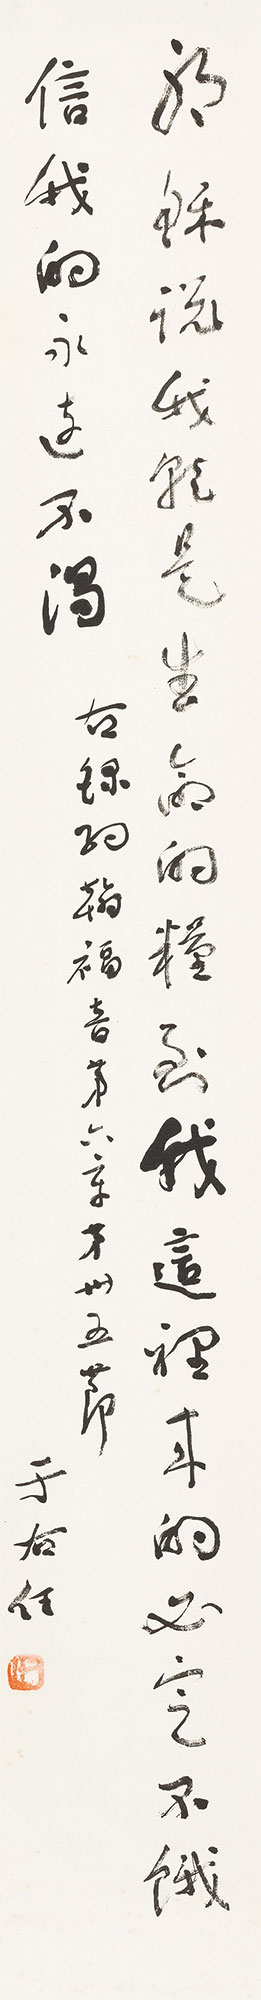 耶穌說我就是生命的糧到我這裡來的必定不餓
信我的永遠不渴
右錄約翰福音第六章第卅五節
于右任